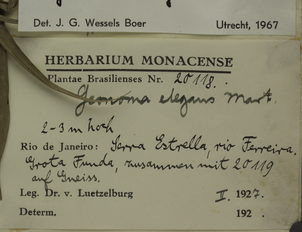 Det. J. G. Wessels Boer Utrecht, 1967
HERBARIUM MONACENSE
Plantae Brasilienses Nr. 20118.
Geonoma elegans Mart.
2-3 m hoch
Rio de Janeiro: Serra Estrella, rio Ferreira.
Grota Funda, zusammen mit 20119
auf Gneiss.
Leg. Dr. v. Luetzelburg II. 1927.
Determ. 192 .